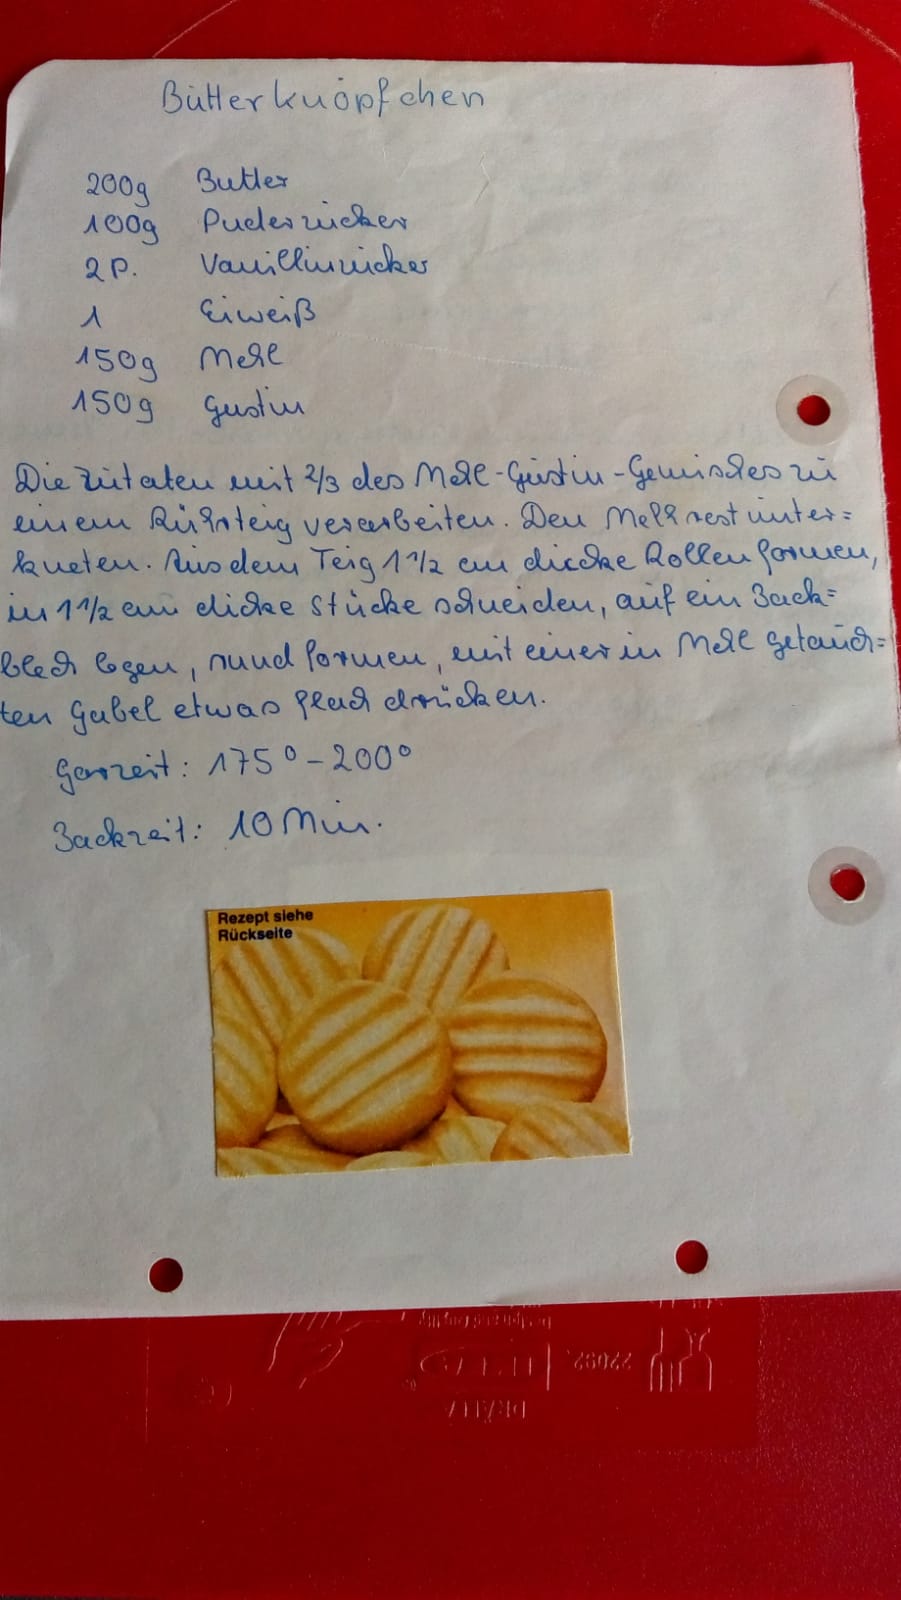 Butterknöpfchen
200g Butter
100g Puderzucker
2P. Vanillinzucker
1 Eiweiß
150g Mehl
150g Gustin
Die Zutaten mit 2/3 des Mehl-Gustin-Gemisches zu
einem Rührteig verarbeiten. Den Mehlrest unter=
kneten. Aus dem Teig 1 1/2 cm dicke Rollen formen,
in 1 1/2 cm dicke Stücke schneiden, auf ein Back=
blech legen, rund formen, mit einer in Mehl getauch=
ten Gabel etwas flach drücken.
Garzeit: 175° - 200°
Backzeit: 10 Min.
Rezept siehe
Rückseite
22092